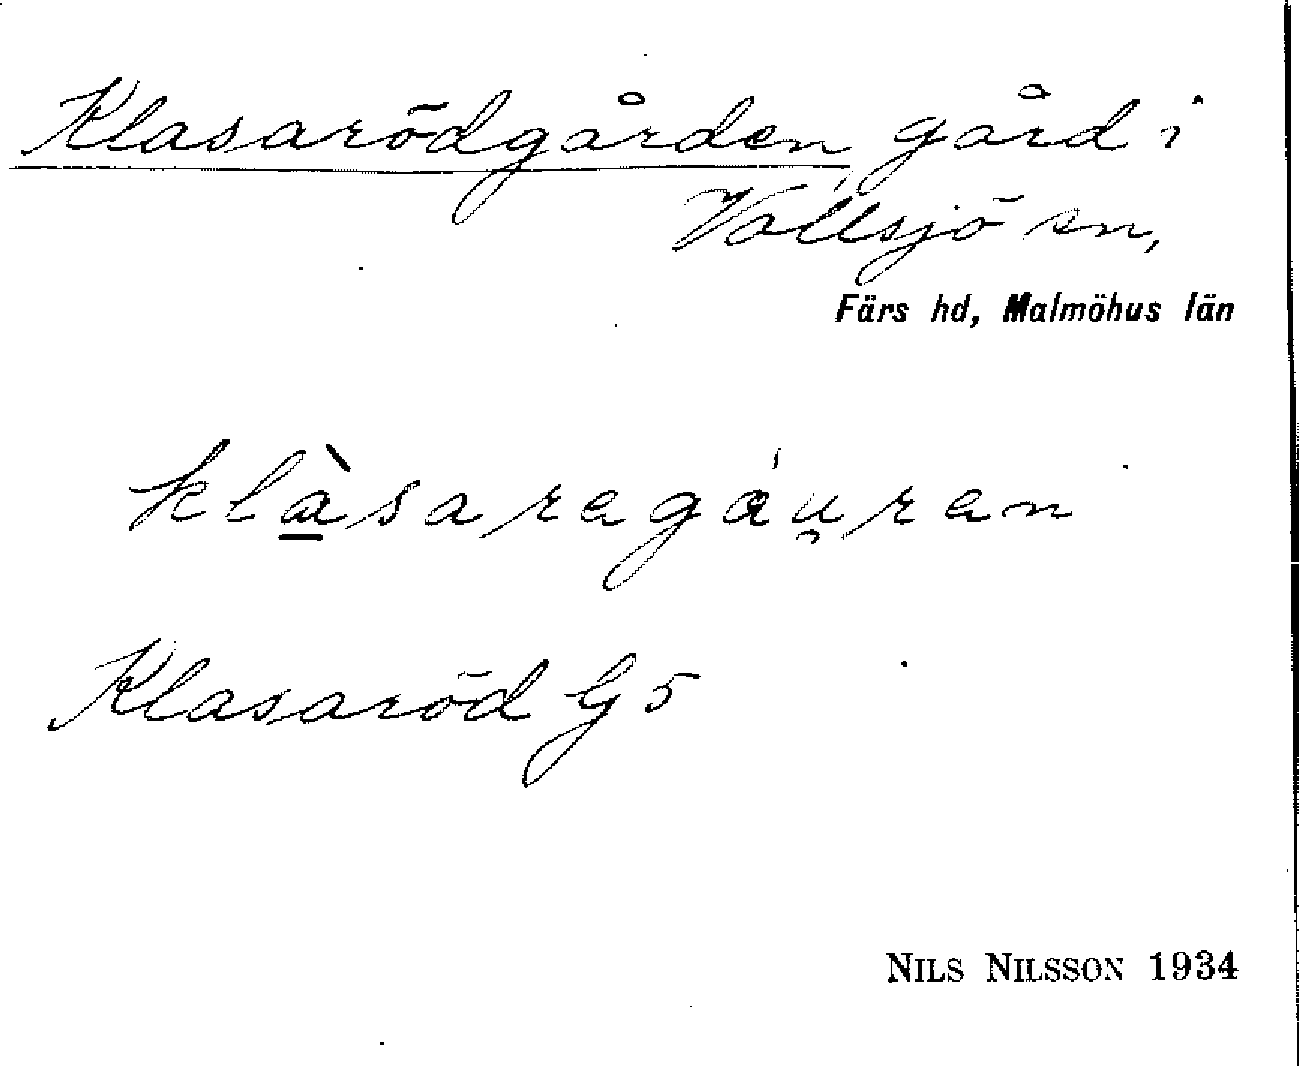 Klasarödgården, gård i
Vollsjö sn,
Färs hd, Malmöhus län
klà̱saragáu̯ran
Klasaröd G5
NILS NILSSON 1934